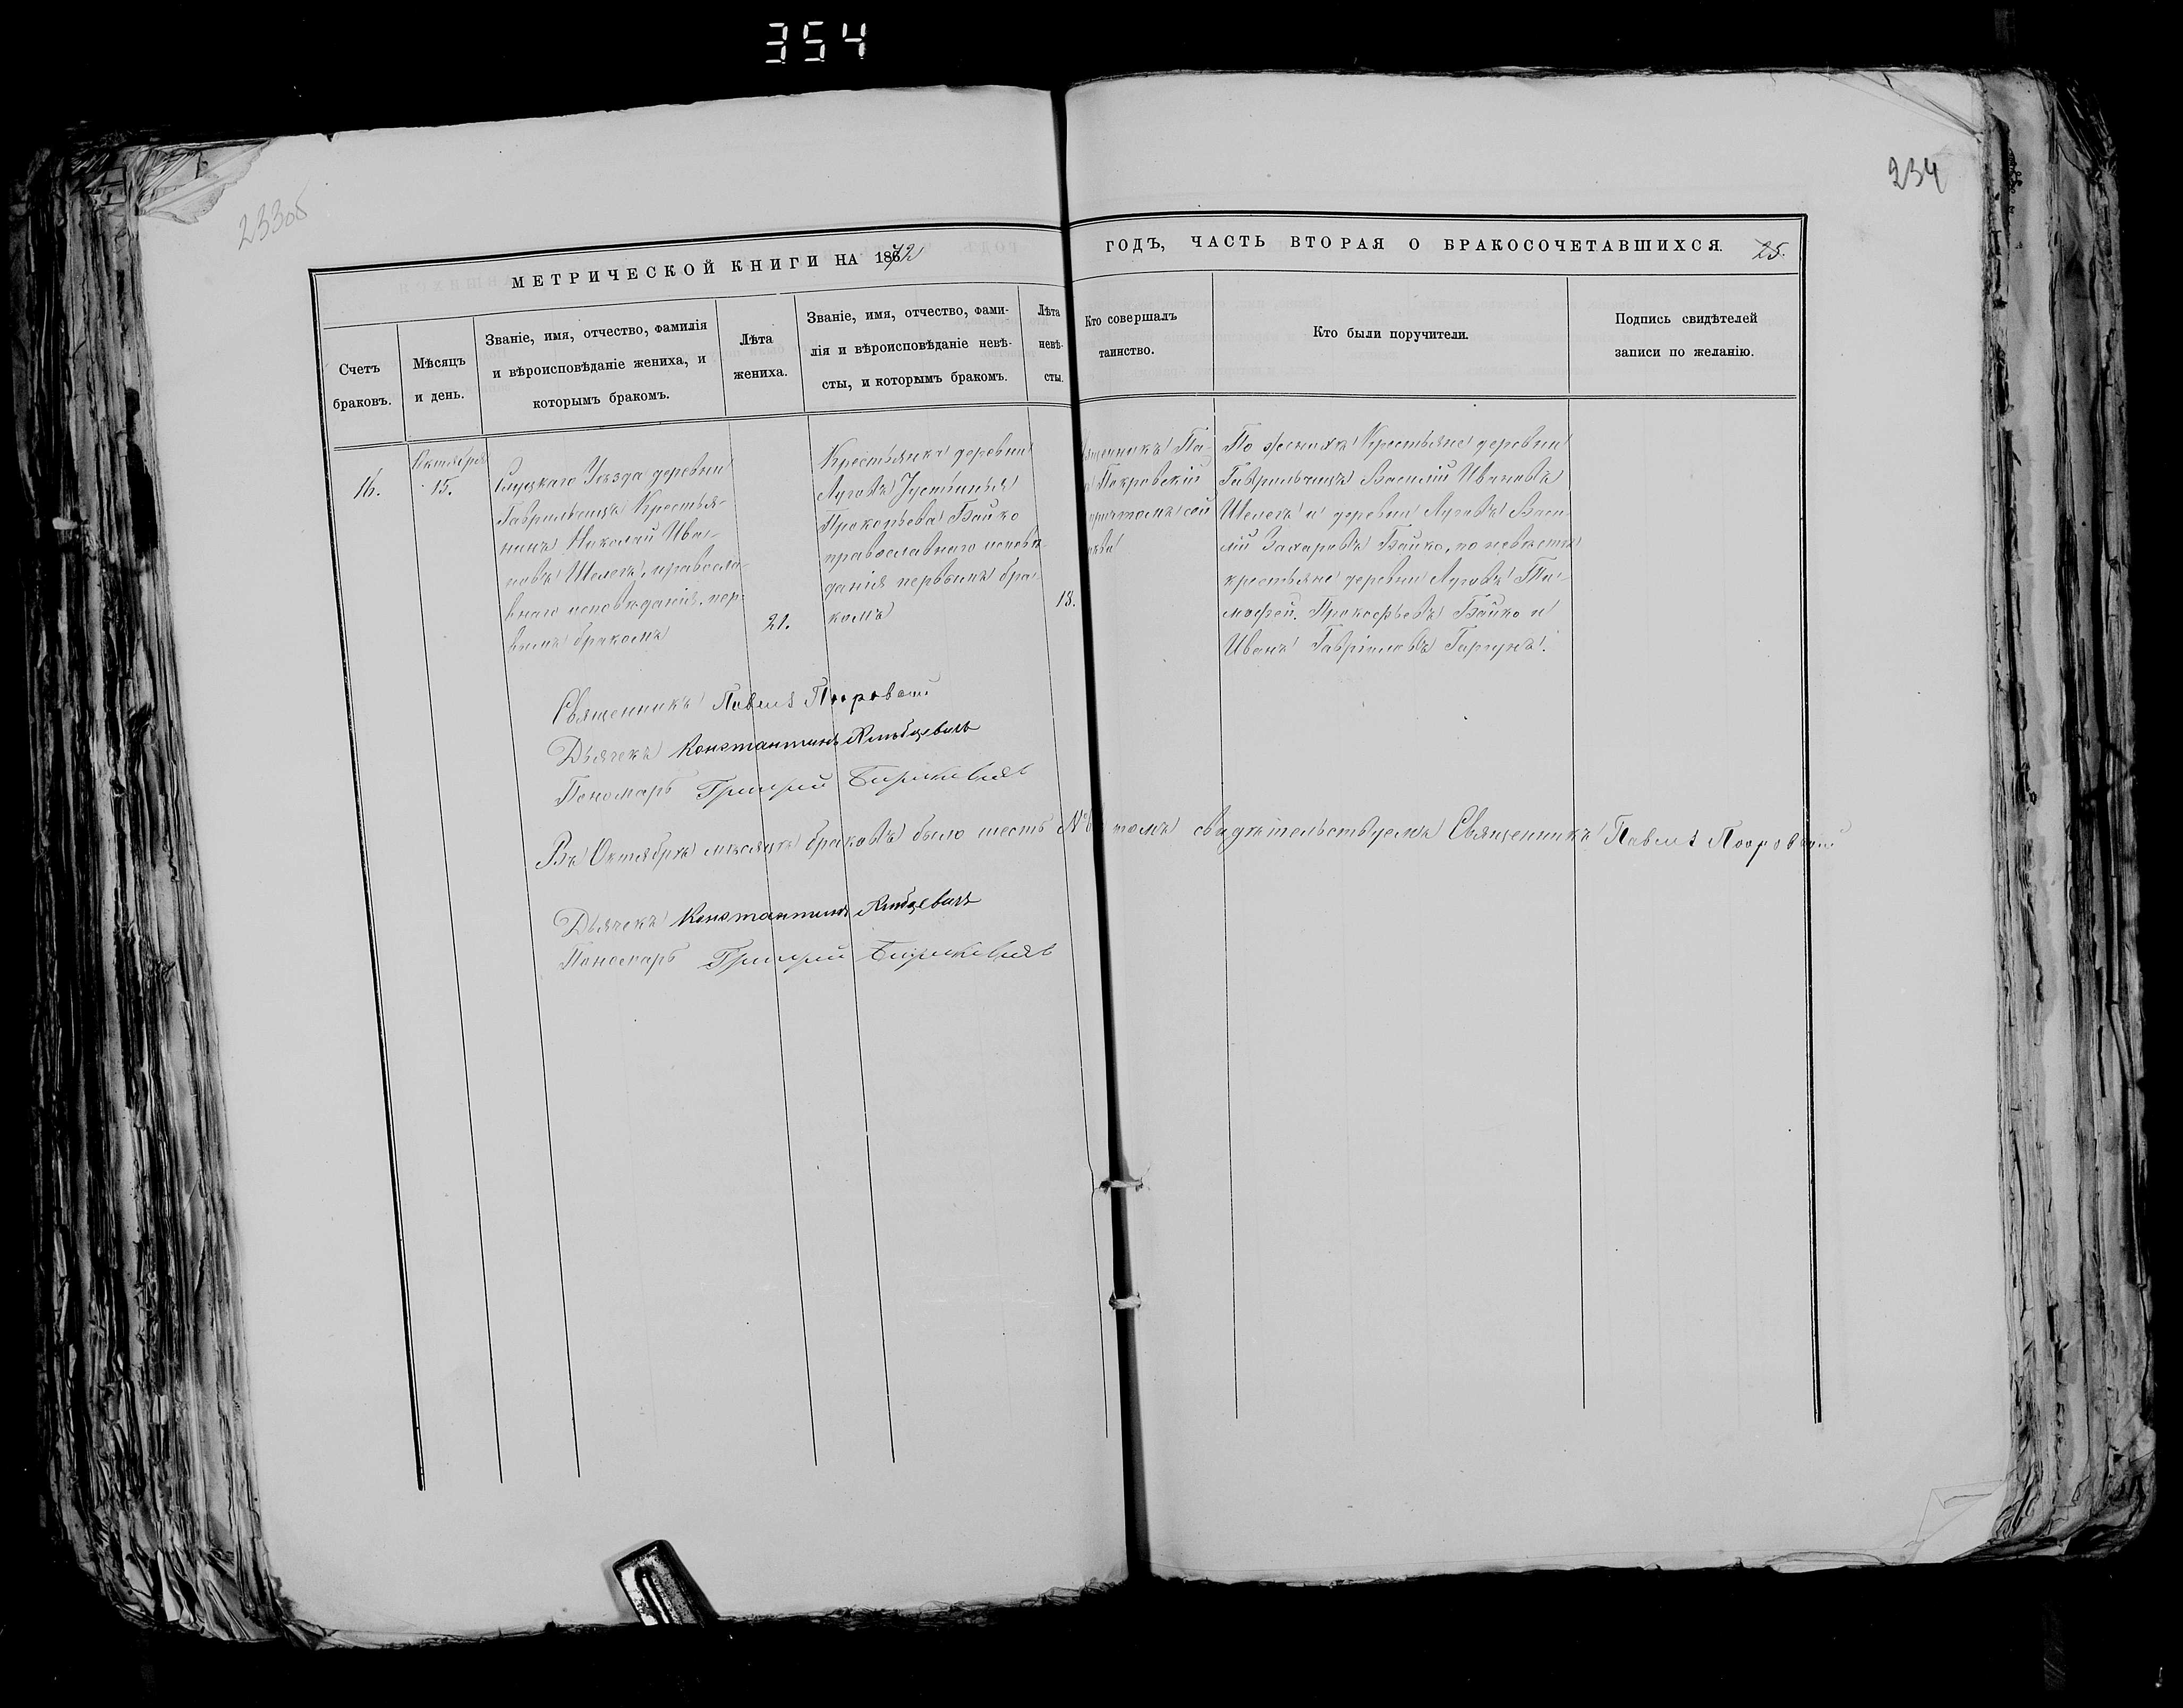 354
233об
234
МЕТРИЧЕСКОЙ КНИГИ НА 1872
ГОДЪ, ЧАСТЬ ВТОРАЯ О БРАКОСОЧЕТАВШИХСЯ.
25.
Счетъ
браковъ.
Мѣсяцъ
и день.
Званіе, имя, отчество, фамилія
и вѣроисповѣданіе жениха, и
которымъ бракомъ.
Лѣта
жениха.
Званіе, имя, отчество, фами-
лія и вѣроисповѣданіе невѣ-
сты, и которымъ бракомъ.
Лѣта
невѣ-
сты.
Кто совершалъ
таинство.
Кто были поручители.
Подпись свидѣтелей
записи по желанію.
16.
Октября
15.
Слуцкаго Уѣзда деревни
Гаврильчицъ Крестья-
нинъ Николай Ива-
новъ Шелегъ, правосла-
внаго исповѣданія, пер-
вымъ бракомъ
21.
Крестьянка деревни
Луговъ Іустинья
Прокопьева Байко
православнаго исповѣ-
данія первымъ бра-
комъ
18.
Священникъ Па-
Покровскій
причтомъ
По женихѣ Крестьяне деревни
Гаврильчицъ Василій Ивановъ
Шелегъ и деревни Луговъ Васи-
лій Захаровъ Байко, по невѣстѣ
крестьяне деревни Луговъ Ти-
мофей Прокофьевъ Байко и
Иванъ Гавріиловъ
Священникъ Павелъ Покровскій
Дьячекъ Константинъ
Пономарь Григорій
Въ Октябрѣ мѣсяцѣ браковъ было шесть №6 томъ свидѣтельствуемъ Священникъ Павелъ Покровскій
Дьячекъ Константинъ
Пономарь Григорій